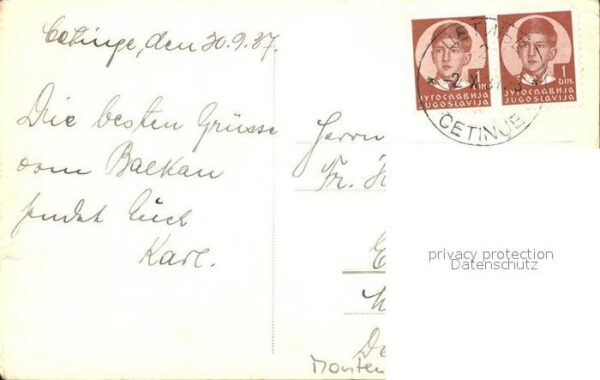 Cetinge, den 30.9.37.
Die besten Grüsse
vom Balkan
sendet Euch
Karl.
Herrn
Fr. H
Monten
1 DIN.
ЈУГОСЛАВИЈА
JUGOSLAVIJA
1 DIN.
ЈУГОСЛАВИЈА
JUGOSLAVIJA
CETINJE
privacy protection
Datenschutz